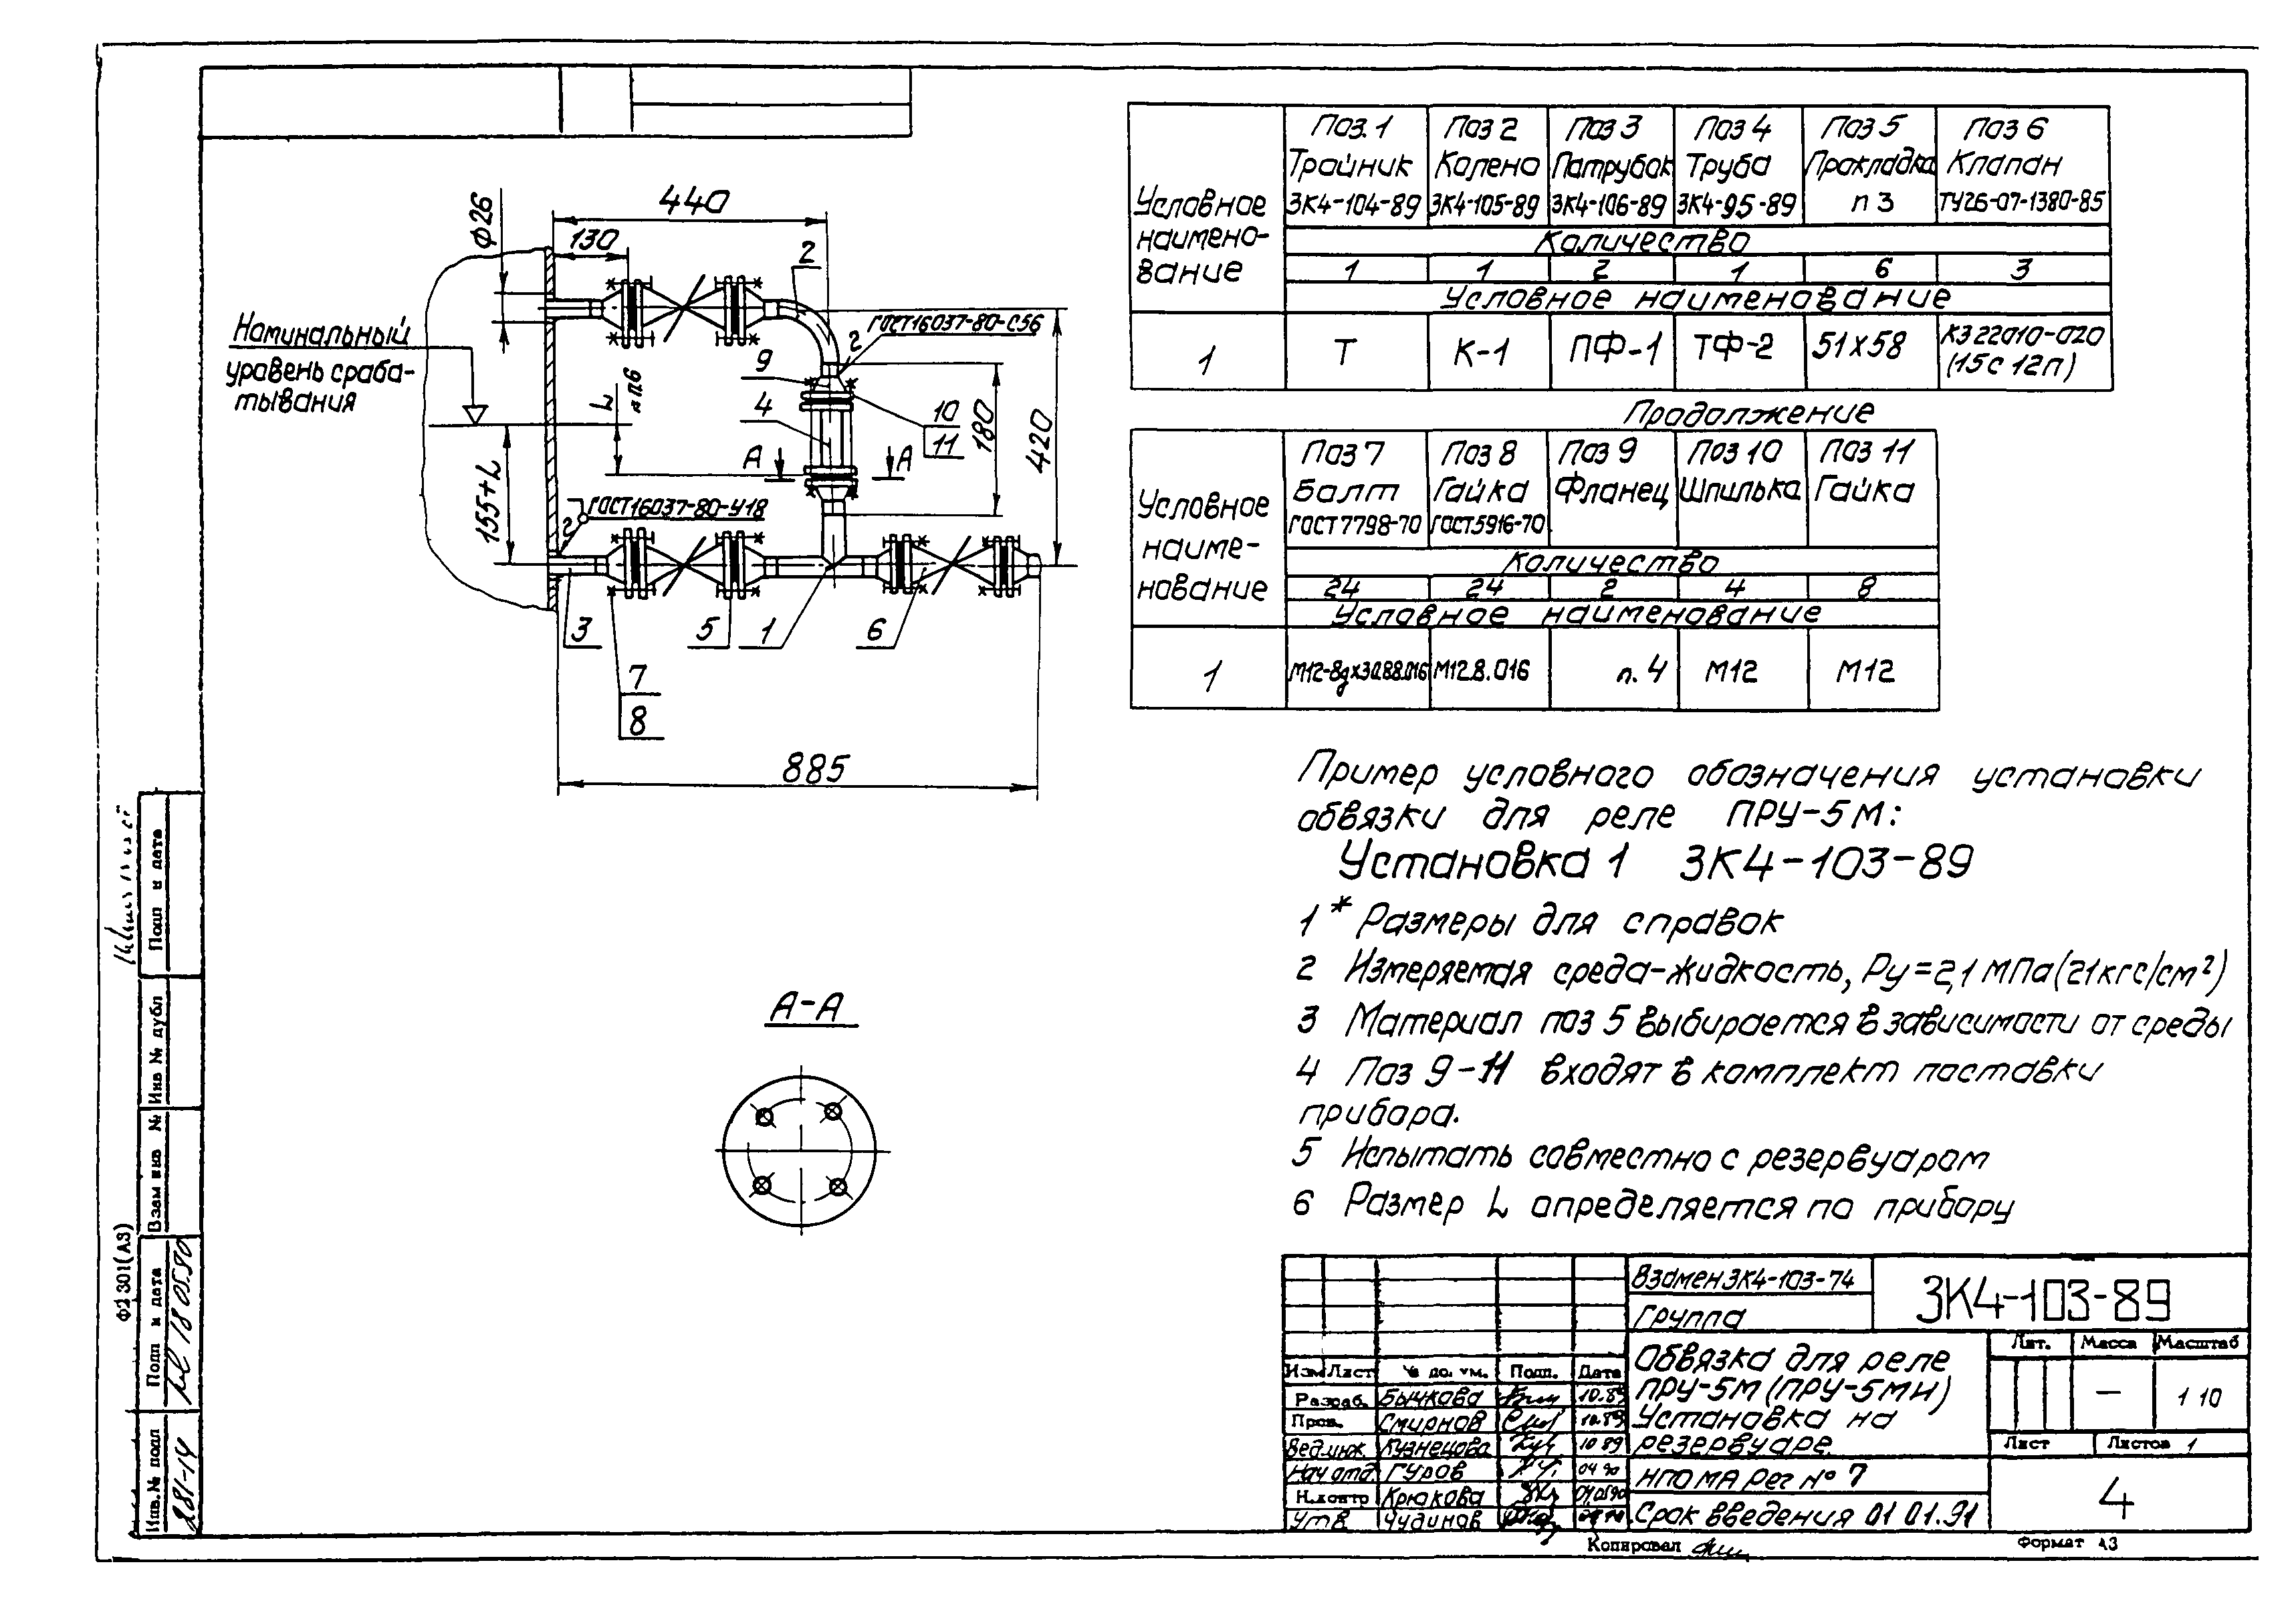 440
Ф26
130
2
Номинальный
уровень сраба-
тывания
ГОСТ16037-80-С56
2
9
L
п 6
4
10
11
180
420
А
А
155+L
ГОСТ16037-80-У18
2
3
5
1
6
7
8
885
А-А
Условное
наимено-
вание
Поз.1
Тройник
ЗК4-104-89
Поз 2
Колено
ЗК4-105-89
Поз 3
Патрубок
ЗК4-106-89
Поз 4
Труба
ЗК4-95-89
Поз 5
Прокладка
п 3
Поз 6
Клапан
ТУ26-07-1380-85
Количество
1 1 2 1 6 3
Условное наименование
1 Т К-1 ПФ-1 ТФ-2 51х58 КЗ 22010-020
(15с 12п)
Продолжение
Условное
наиме-
нование
Поз 7
Болт
ГОСТ7798-70
Поз 8
Гайка
ГОСТ5916-70
Поз 9
Фланец
Поз 10
Шпилька
Поз 11
Гайка
Количество
24 24 2 4 8
Условное наименование
1 М12-8gх30.88.016 М12.8.016 п. 4 М12 М12
Пример условного обозначения установки
обвязки для реле ПРУ-5М:
Установка 1 ЗК4-103-89
1 * Размеры для справок
2 Измеряемая среда-жидкость, Ру=2,1 МПа(21кгс/см²)
3 Материал поз 5 выбирается в зависимости от среды
4 Поз 9-11 входят в комплект поставки
прибора.
5 Испытать совместно с резервуаром
6 Размер L определяется по прибору
Взамен ЗК4-103-74
Группа
ЗК4-103-89
Обвязка для реле
ПРУ-5М (ПРУ-5МИ)
Установка на
резервуаре.
Лит. Масса Масштаб
— 1 10
Лист Листов 1
НПО МА рег № 7
Срок введения 01 01.91
4
Изм Лист № до. ум. Подп. Дата
Разраб. Бычкова 10.89
Пров. Смирнов 10.89
Вед.инж. Кузнецова 10 89
Нач отд. Гуров 04 90
Н.контр Крюкова
Утв Чудинов
Копировал
Формат А3
Подп и дата
Инв № дубл
Взам инв №
Подп и дата
18 05.90
Инв.№ подл
281-14
Ф2 301(А3)